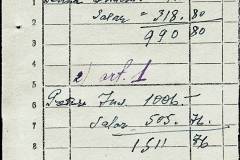 1
2 Salar - 318.80
3 990 80
4
5 2) art. 1
6 Inv. 1006.-
7 Salar 505. 76.
8 1511 76